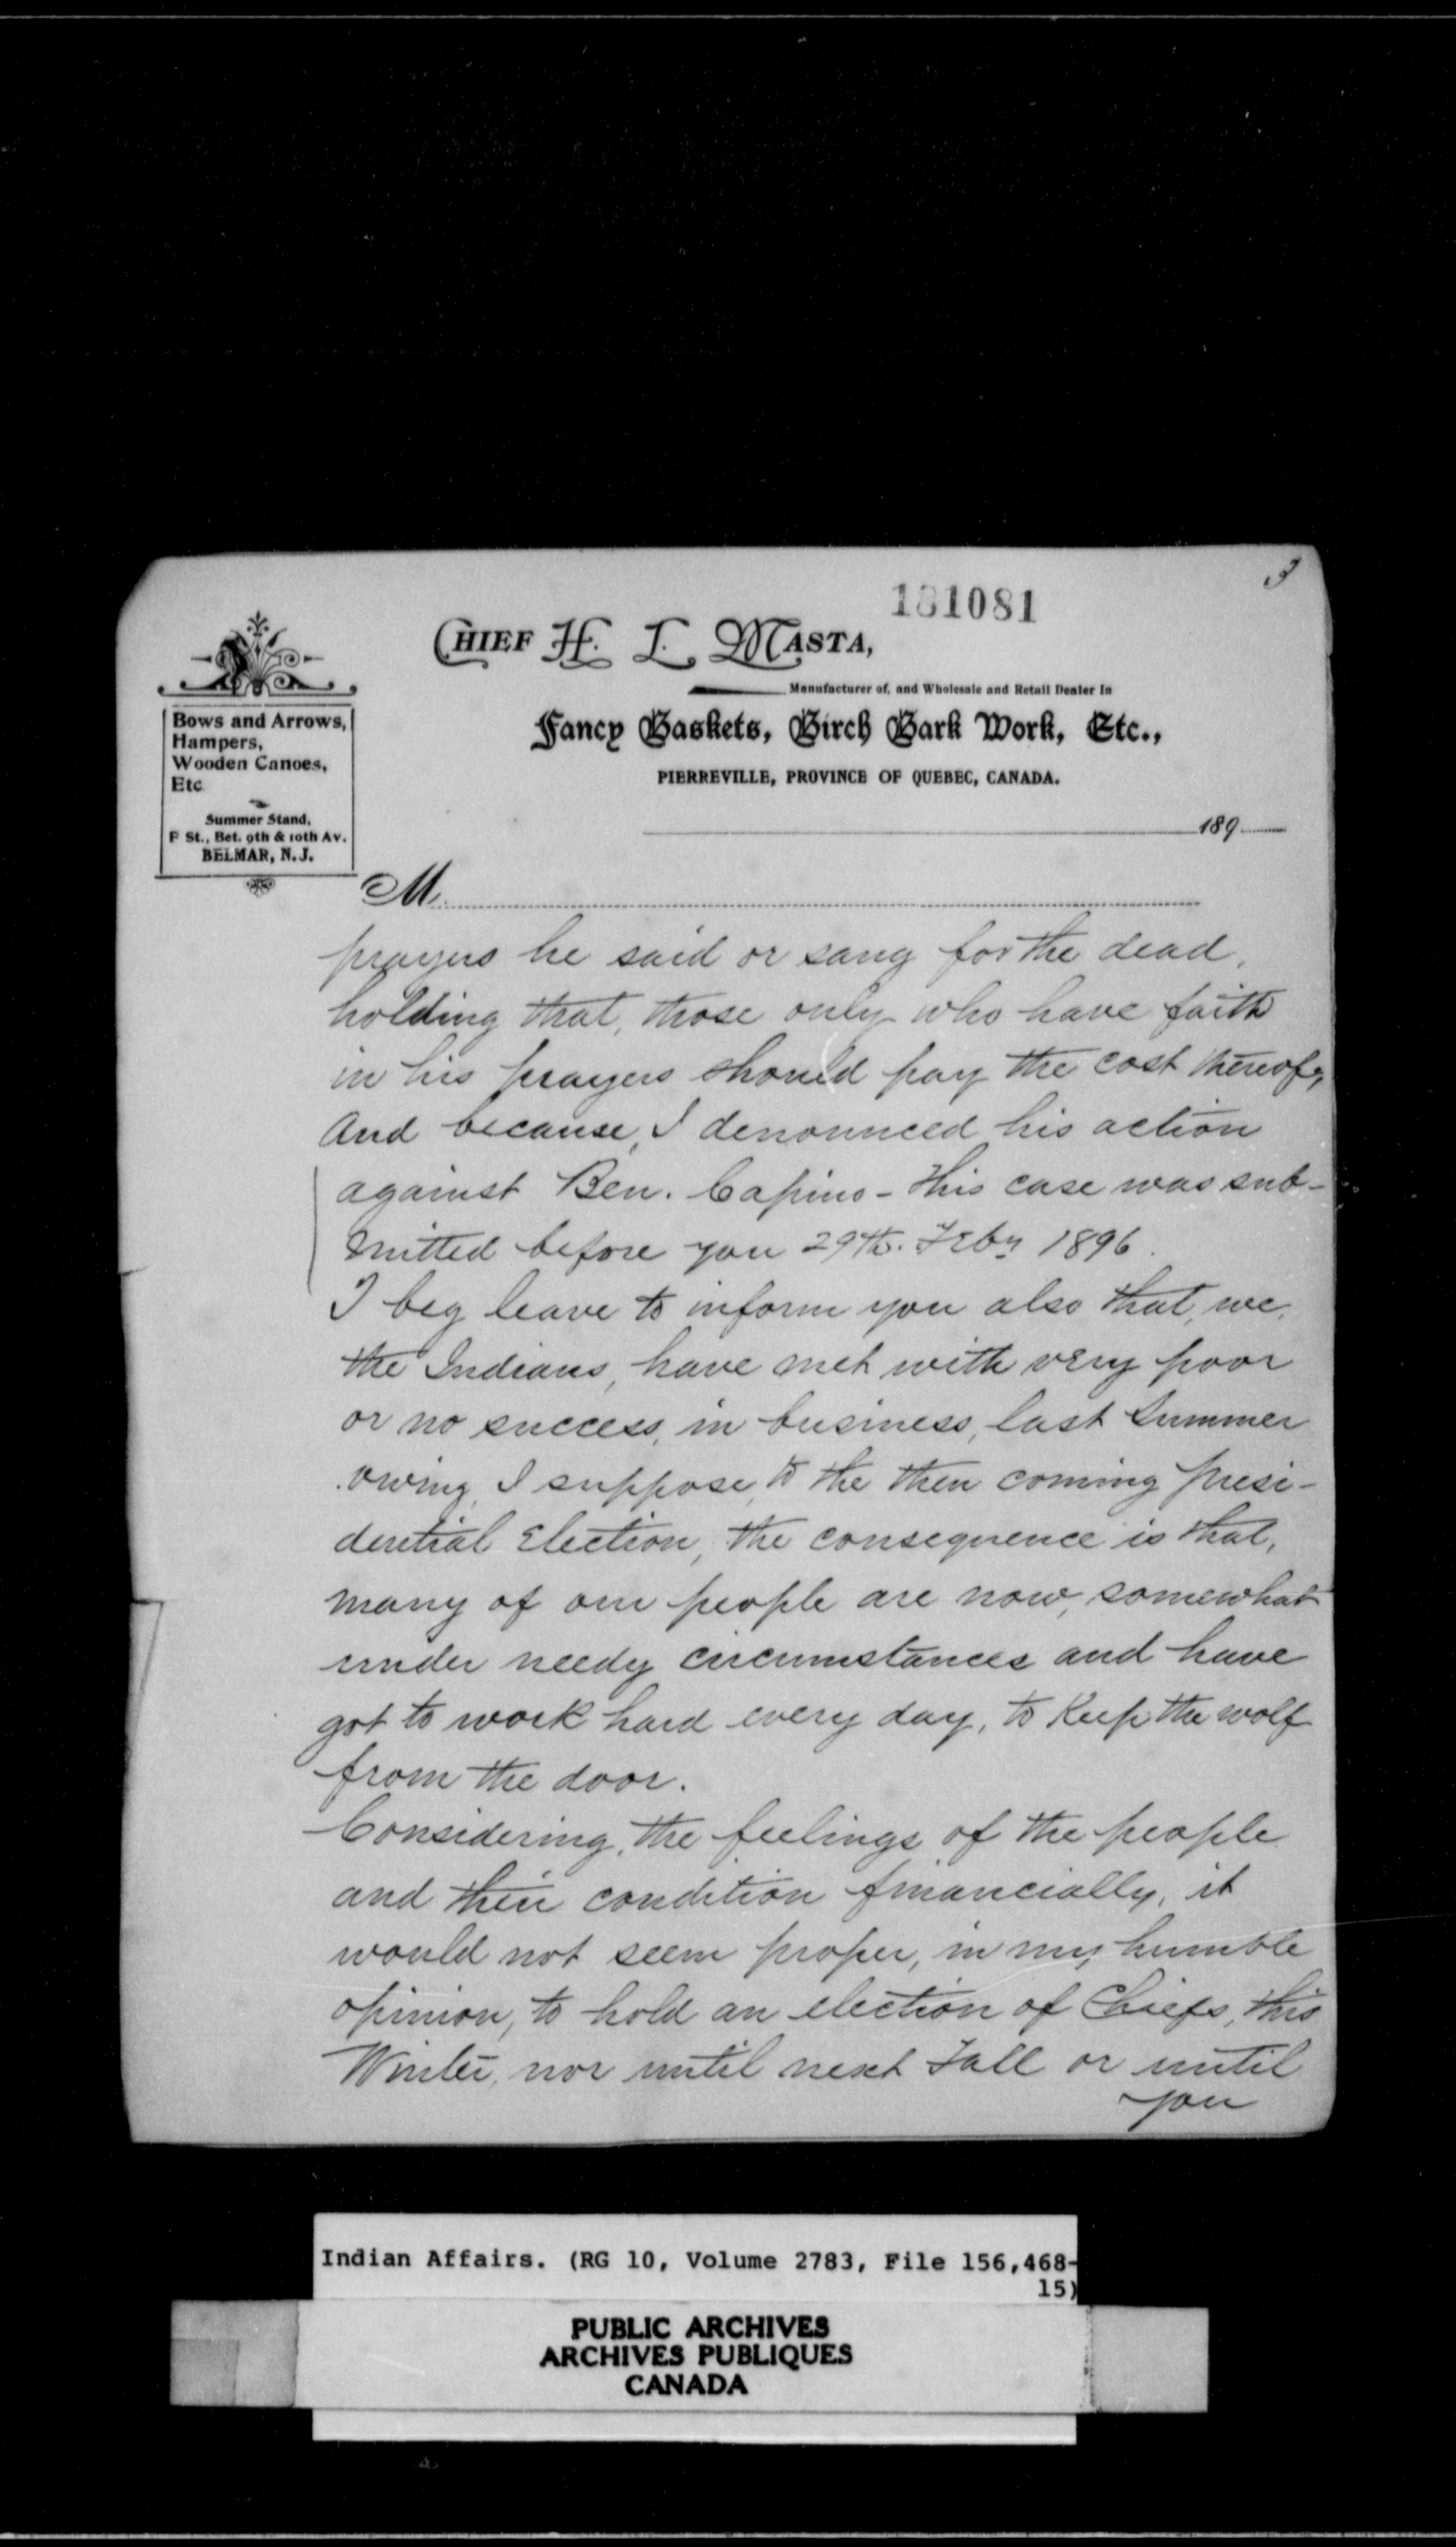 3
181081
CHIEF H. L. MASTA,
Manufacturer of, and Wholesale and Retail Dealer In
Fancy Baskets, Birch Bark Work, Etc.,
PIERREVILLE, PROVINCE OF QUEBEC, CANADA.
Bows and Arrows,
Hampers,
Wooden Canoes,
Etc
Summer Stand,
F St., Bet. 9th & 10th Av.
BELMAR, N. J.
189
M
prayers he said or sang for the dead,
holding that, those only who have faith
in his prayers should pay the cost thereof,
And because, I denounced his action
against Ben. Capino - This case was sub-
mitted before you 29th. Feby 1896.
I beg leave to inform you also that, we,
the Indians, have met with very poor
or no success, in business, last Summer
owing, I suppose, to the then coming presi-
dential Election, the consequence is that,
many of our people are now, somewhat
under needy circumstances and have
got to work hard every day, to Keep the wolf
from the door.
Considering, the feelings of the people
and their condition financially, it
would not seem proper, in my humble
opinion, to hold an election of Chiefs, this
Winter, nor until next Fall or until
you
Indian Affairs. (RG 10, Volume 2783, File 156,468-
15)
PUBLIC ARCHIVES
ARCHIVES PUBLIQUES
CANADA